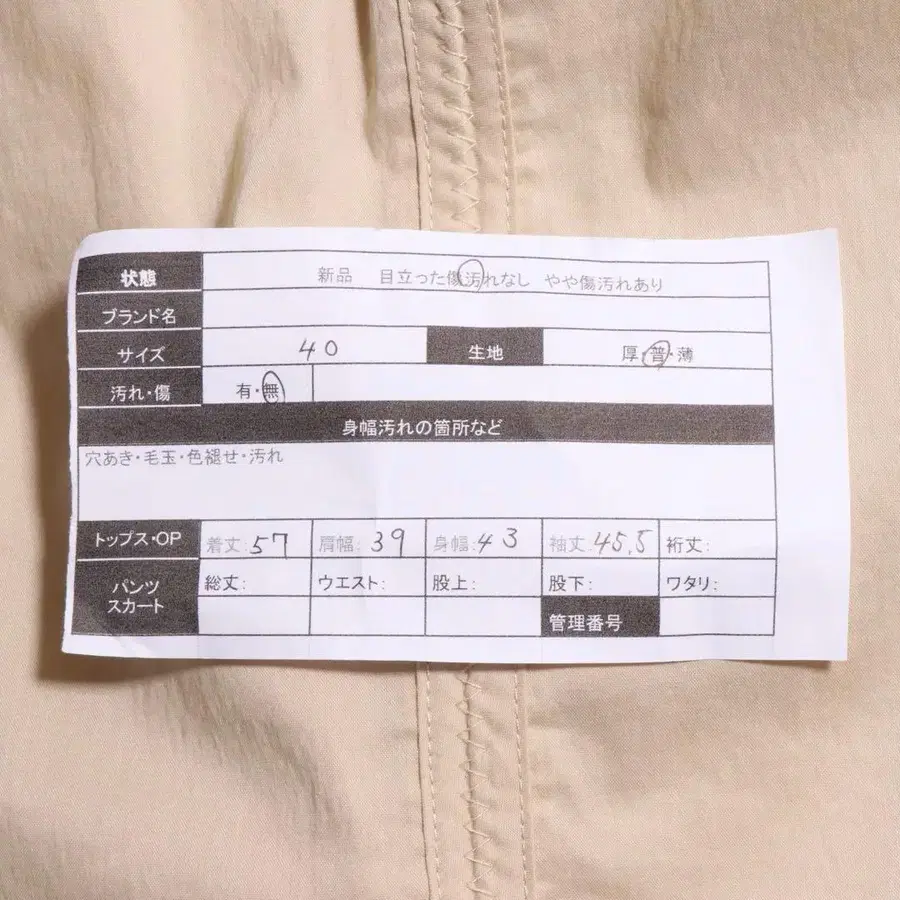 状態 新品 目立った傷汚れなし やや傷汚れあり
ブランド名
サイズ 40 生地 厚・普・薄
汚れ・傷 有・無
身幅汚れの箇所など
穴あき・毛玉・色褪せ・汚れ
トップス・OP 着丈:57 肩幅:39 身幅:43 袖丈:45.5 裄丈:
パンツ 総丈: ウエスト: 股上: 股下: ワタリ:
スカート
管理番号